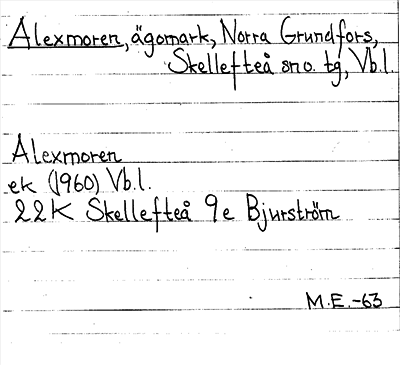 Alexmoren, ägomark, Norra Grundfors,
Skellefteå sno. tg, Vb.l.
Alexmoren
ek (1960) Vb.l.
22K Skellefteå 9e Bjurström
M.E.-63